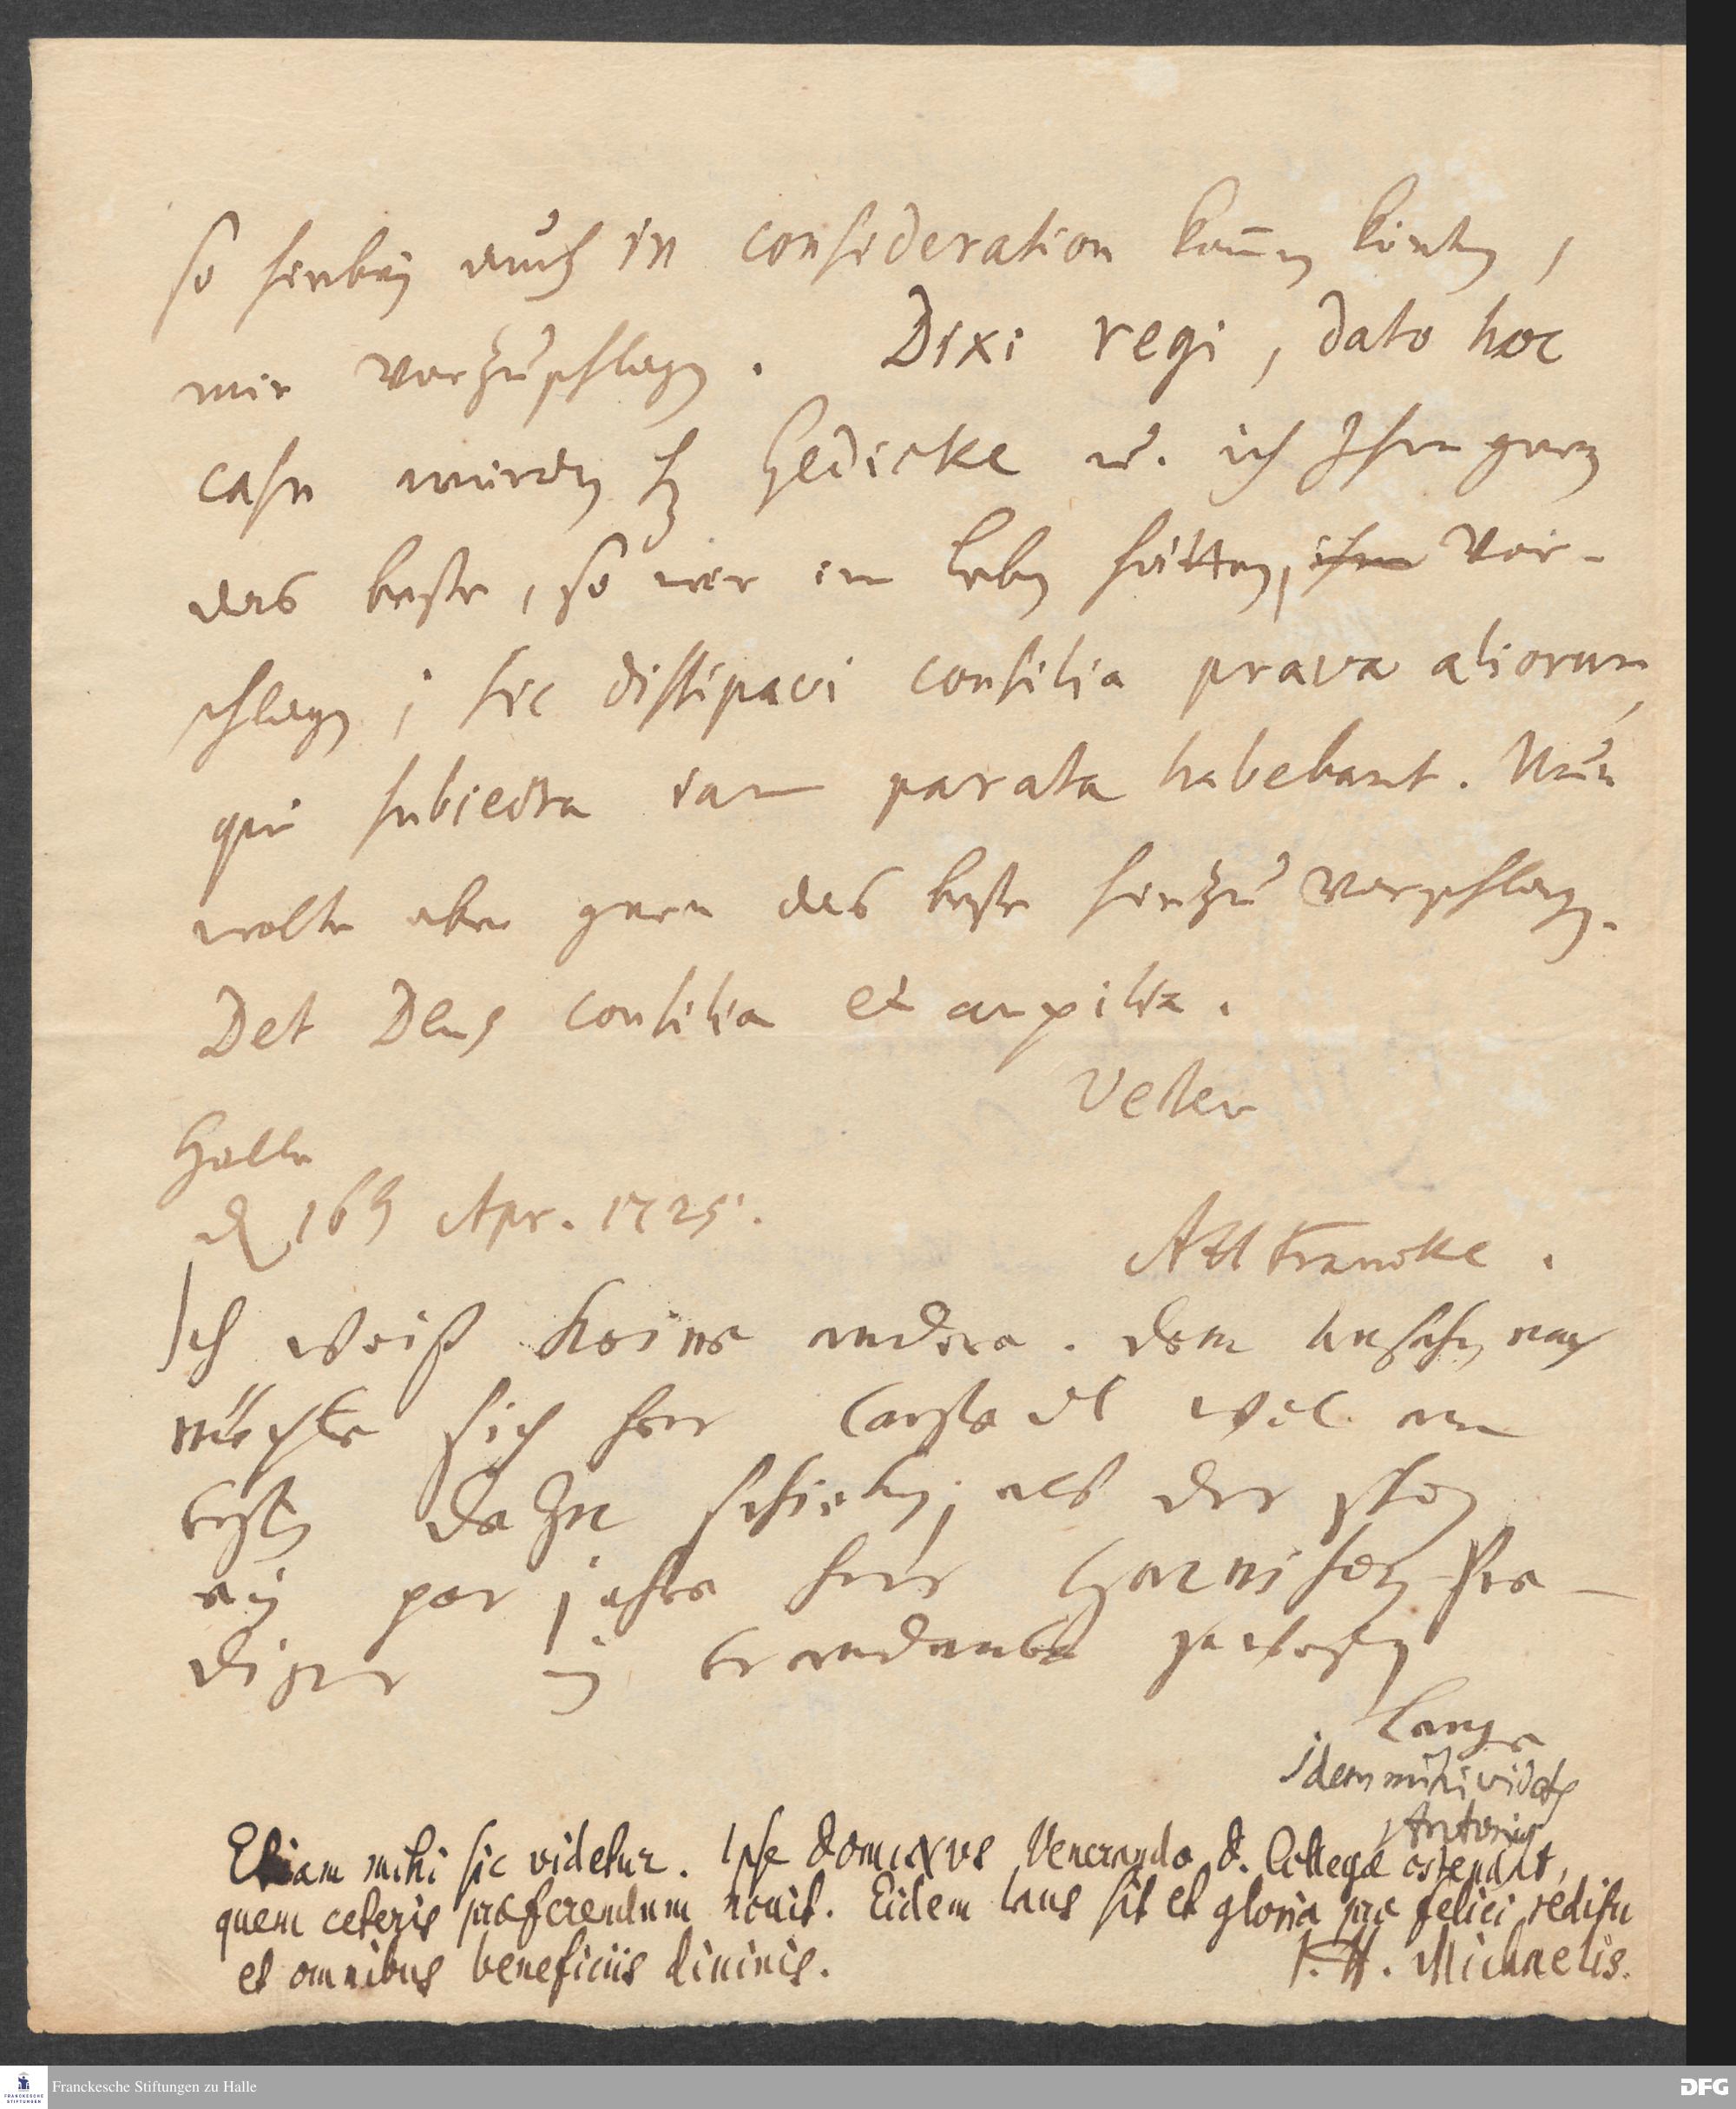 so hierbey auch in consideration kom̅en könten,
mir vorzuschlagen. Dixi regi, dato hoc
casu würden H Gedicke u. ich Ihm gern
das beste, so wir im leben hätten, ihm vor-
schlagen; sic dissipavi consilia prava aliorum,
qui subiecta iam parata habebant. Nun
wolte aber gern das beste hierzu vorschlagen.
Det Deus consilia et auxilia.
Vester
Halle
d 16 Apr. 1725.
AHFrancke.
Ich weiß keine andere. Dem ansehen nach
möchte sich herr Carstedt wol am
besten dazu schicken, als der schon
ein par jahre hier Garnison-Pre-
diger in gewesen
Lange
idem mihi videtur
Antonius
Etiam mihi sic videtur. Ipse DOMINVS Venerando D. Collegae ostendat,
quem ceteris praeferendum novit. Eidem laus sit et gloria pro felici reditu
et omnibus beneficiis divinis.
I. H. Michaelis.
Franckesche Stiftungen zu Halle
FRANCKESCHE
STIFTUNGEN
DFG